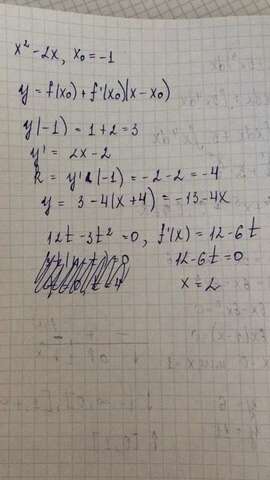 x² - 2x, x₀ = -1
y = f(x₀) + f'(x₀)(x - x₀)
y(-1) = 1 + 2 = 3
y' = 2x - 2
k = y'(-1) = -2 - 2 = -4
y = 3 - 4(x + 4) = -13 - 4x
12t - 3t² = 0, f'(x) = 12 - 6t
12 - 6t = 0
x = 2